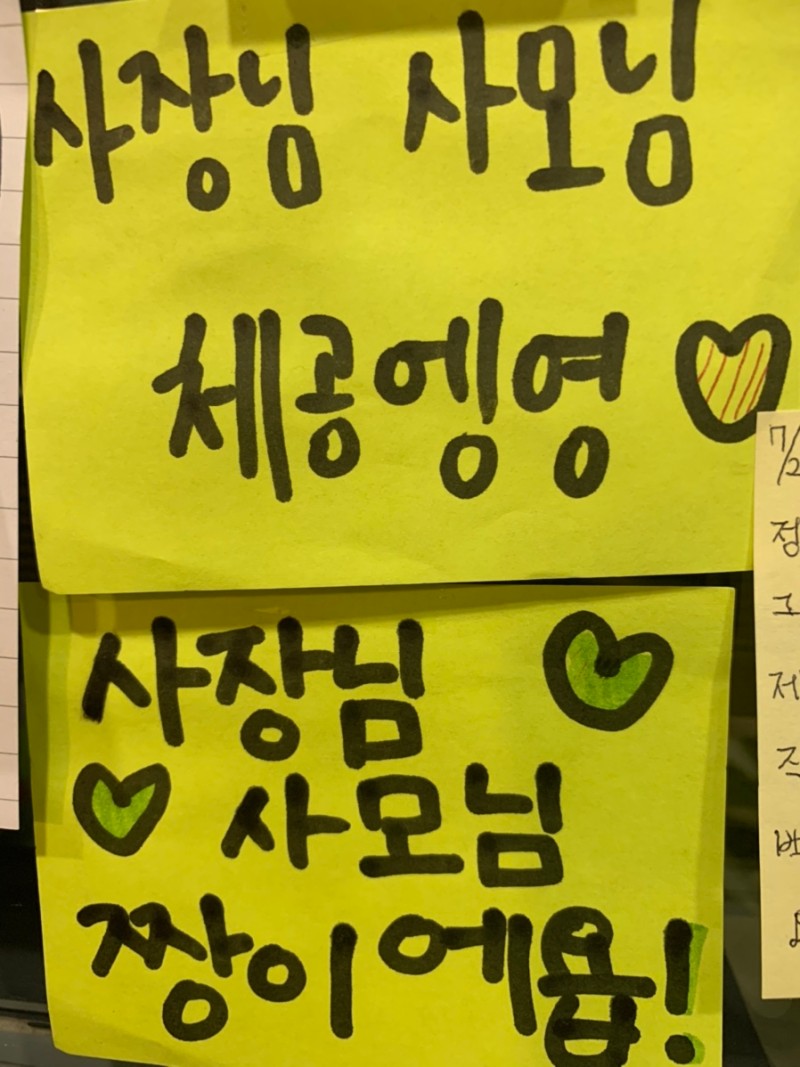 사장님 사모님
체공엥영
사장님
사모님
짱이에욥!
7/2
정
그